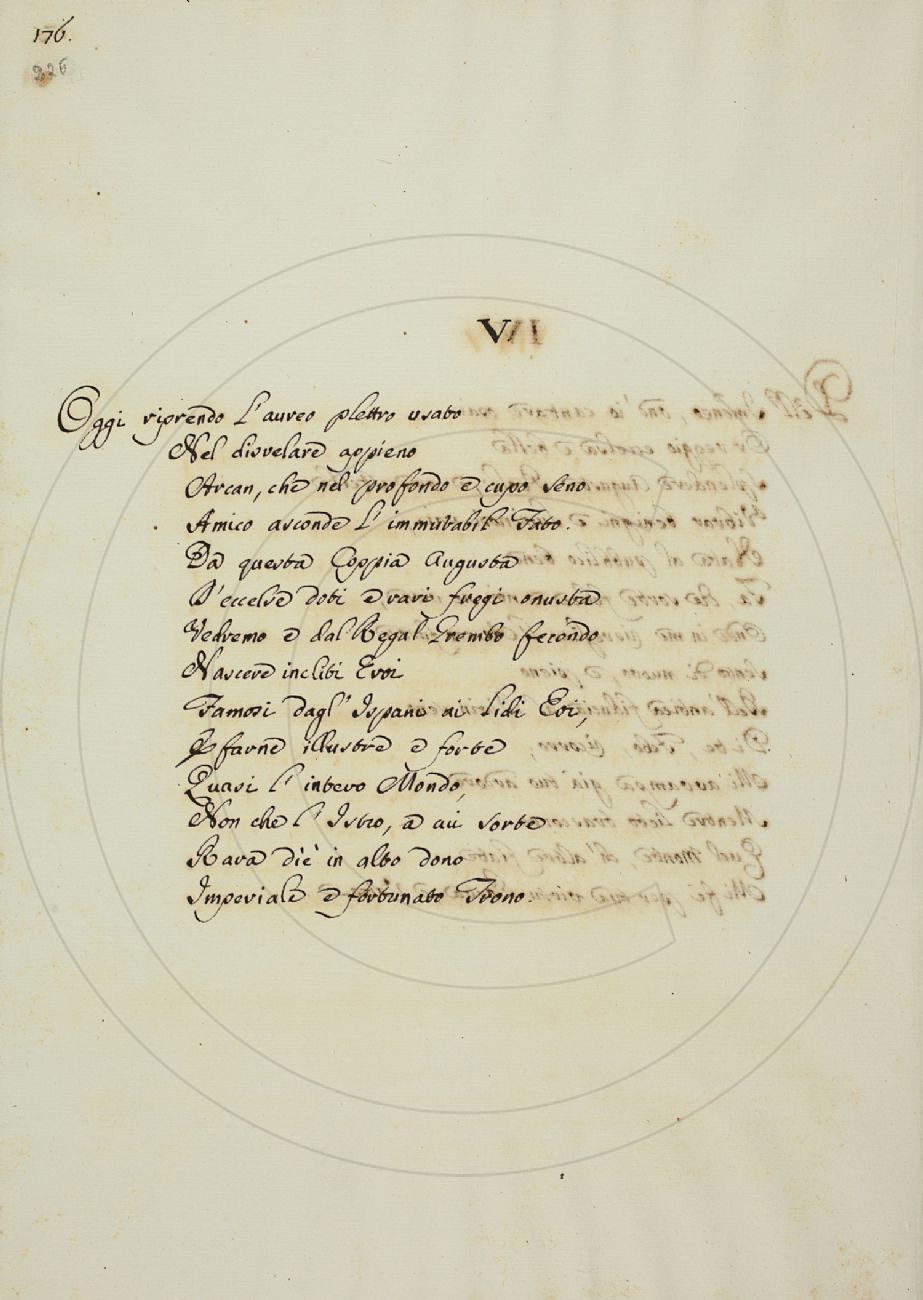 176.
226
V
Oggi riprendo l'aureo plettro usato
Nel disvelare appieno
Arcan, che nel profondo e cupo seno
Amico asconde l'immutabil Fato.
Da questa Coppia Augusta
D'eccelse doti e rari freggi onusta
Vedremo e dal Regal Grembo fecondo
Nascere incliti Eroi
Famosi dagl'Ispani ai Lidi Eoi,
E farne illustre e forte
Quasi l'intero Mondo,
Non che l'Istro, a cui sorte
Rara diè in alto dono
Imperiale e fortunato Trono.